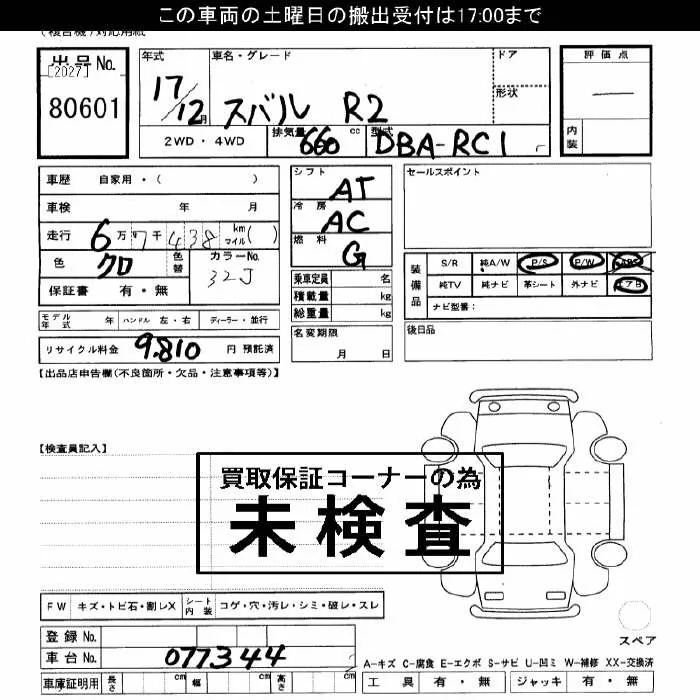 この車両の土曜日の搬出受付は17:00まで
(複合機)対応用紙
出品No.
[2027]
80601
年式
17/12月
車名・グレード
スバル R2
ドア
形状
2WD・4WD
排気量 660 cc
型式 DBA-RC1
評価点
―
内装
車歴 自家用・( )
車検 年 月
走行 6万7千438 km マイル( )
色 クロ
色替
カラーNo. 32J
保証書 有・無
シフト AT
冷房 AC
燃料 G
乗車定員 名
積載量 kg
総重量 kg
セールスポイント
装備品
S/R 純A/W P/S P/W ABS
純TV 純ナビ 革シート 外ナビ エアB
ナビ型番:
モデル年式 年 ハンドル 左・右 ディーラー・並行
名変期限 月 日
後日品
リサイクル料金 9,810 円 預託済
【出品店申告欄(不良箇所・欠品・注意事項等)】
【検査員記入】
買取保証コーナーの為
未検査
FW キズ・トビ石・割レX
シート内装 コゲ・穴・汚レ・シミ・破レ・スレ
スペア
登録No.
車台No. 077344
車庫証明用 長さ cm 幅 cm 高さ cm
A-キズ C-腐食 E-エクボ S-サビ U-凹ミ W-補修 XX-交換済
工具 有・無 ジャッキ 有・無